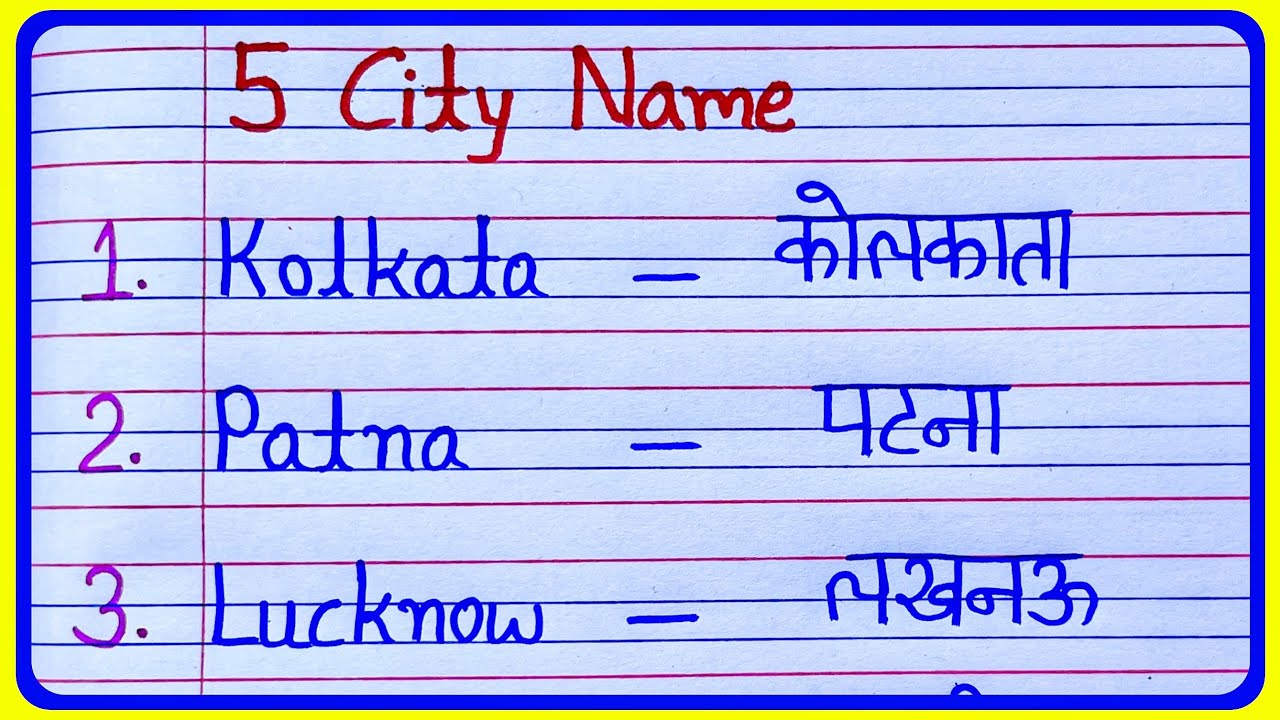 5 City Name
1. Kolkata – कोलकाता
2. Patna – पटना
3. Lucknow – लखनऊ